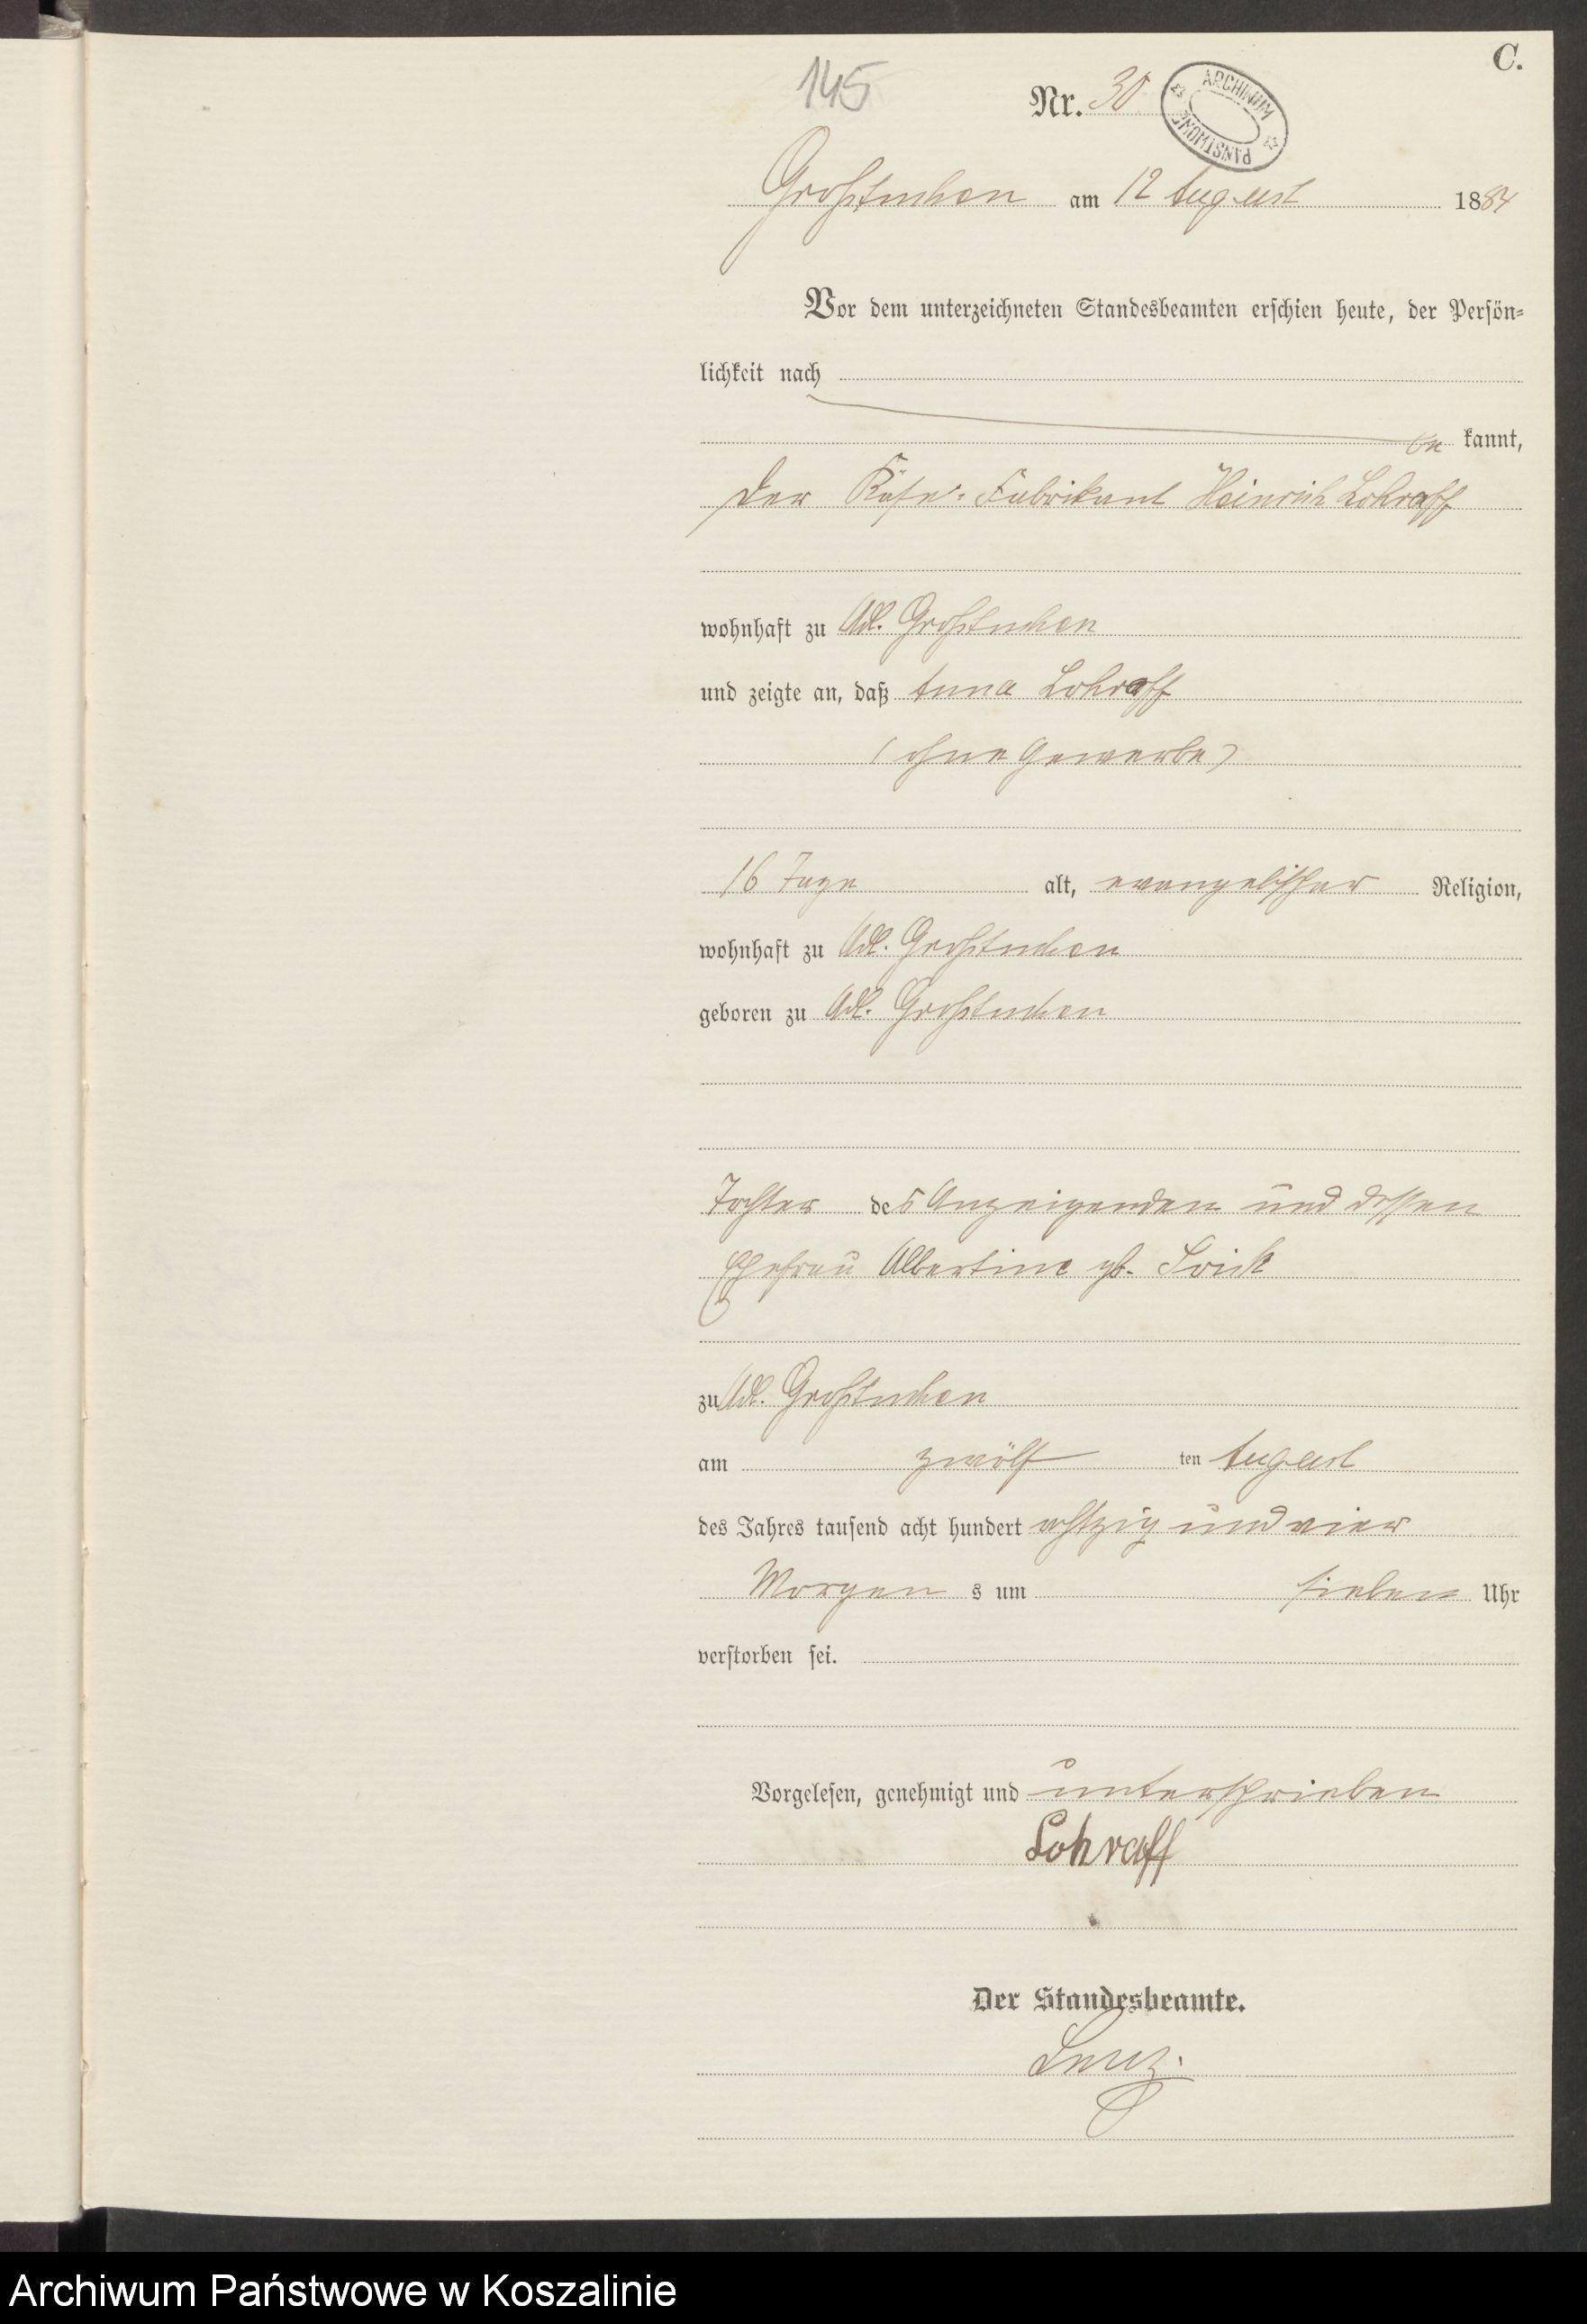 C.
145
Nr. 30
ARCHIWUM PAŃSTWOWE
Großtuchen am 12 August 1884
Vor dem unterzeichneten Standesbeamten erschien heute, der Persön-
lichkeit nach
be kannt,
der Käse-Fabrikant Heinrich Lohraff
wohnhaft zu Adl. Großtuchen
und zeigte an, daß Anna Lohraff
(ohne Gewerbe)
16 Tage alt, evangelischer Religion,
wohnhaft zu Adl. Großtuchen
geboren zu Adl. Großtuchen
Tochter des Anzeigenden und dessen
Ehefrau Albertine gb.
zu Adl. Großtuchen
am zwölf ten August
des Jahres tausend acht hundert achtzig und vier
Morgen s um sieben Uhr
verstorben sei.
Vorgelesen, genehmigt und unterschrieben
Lohraff
Der Standesbeamte.
Archiwum Państwowe w Koszalinie